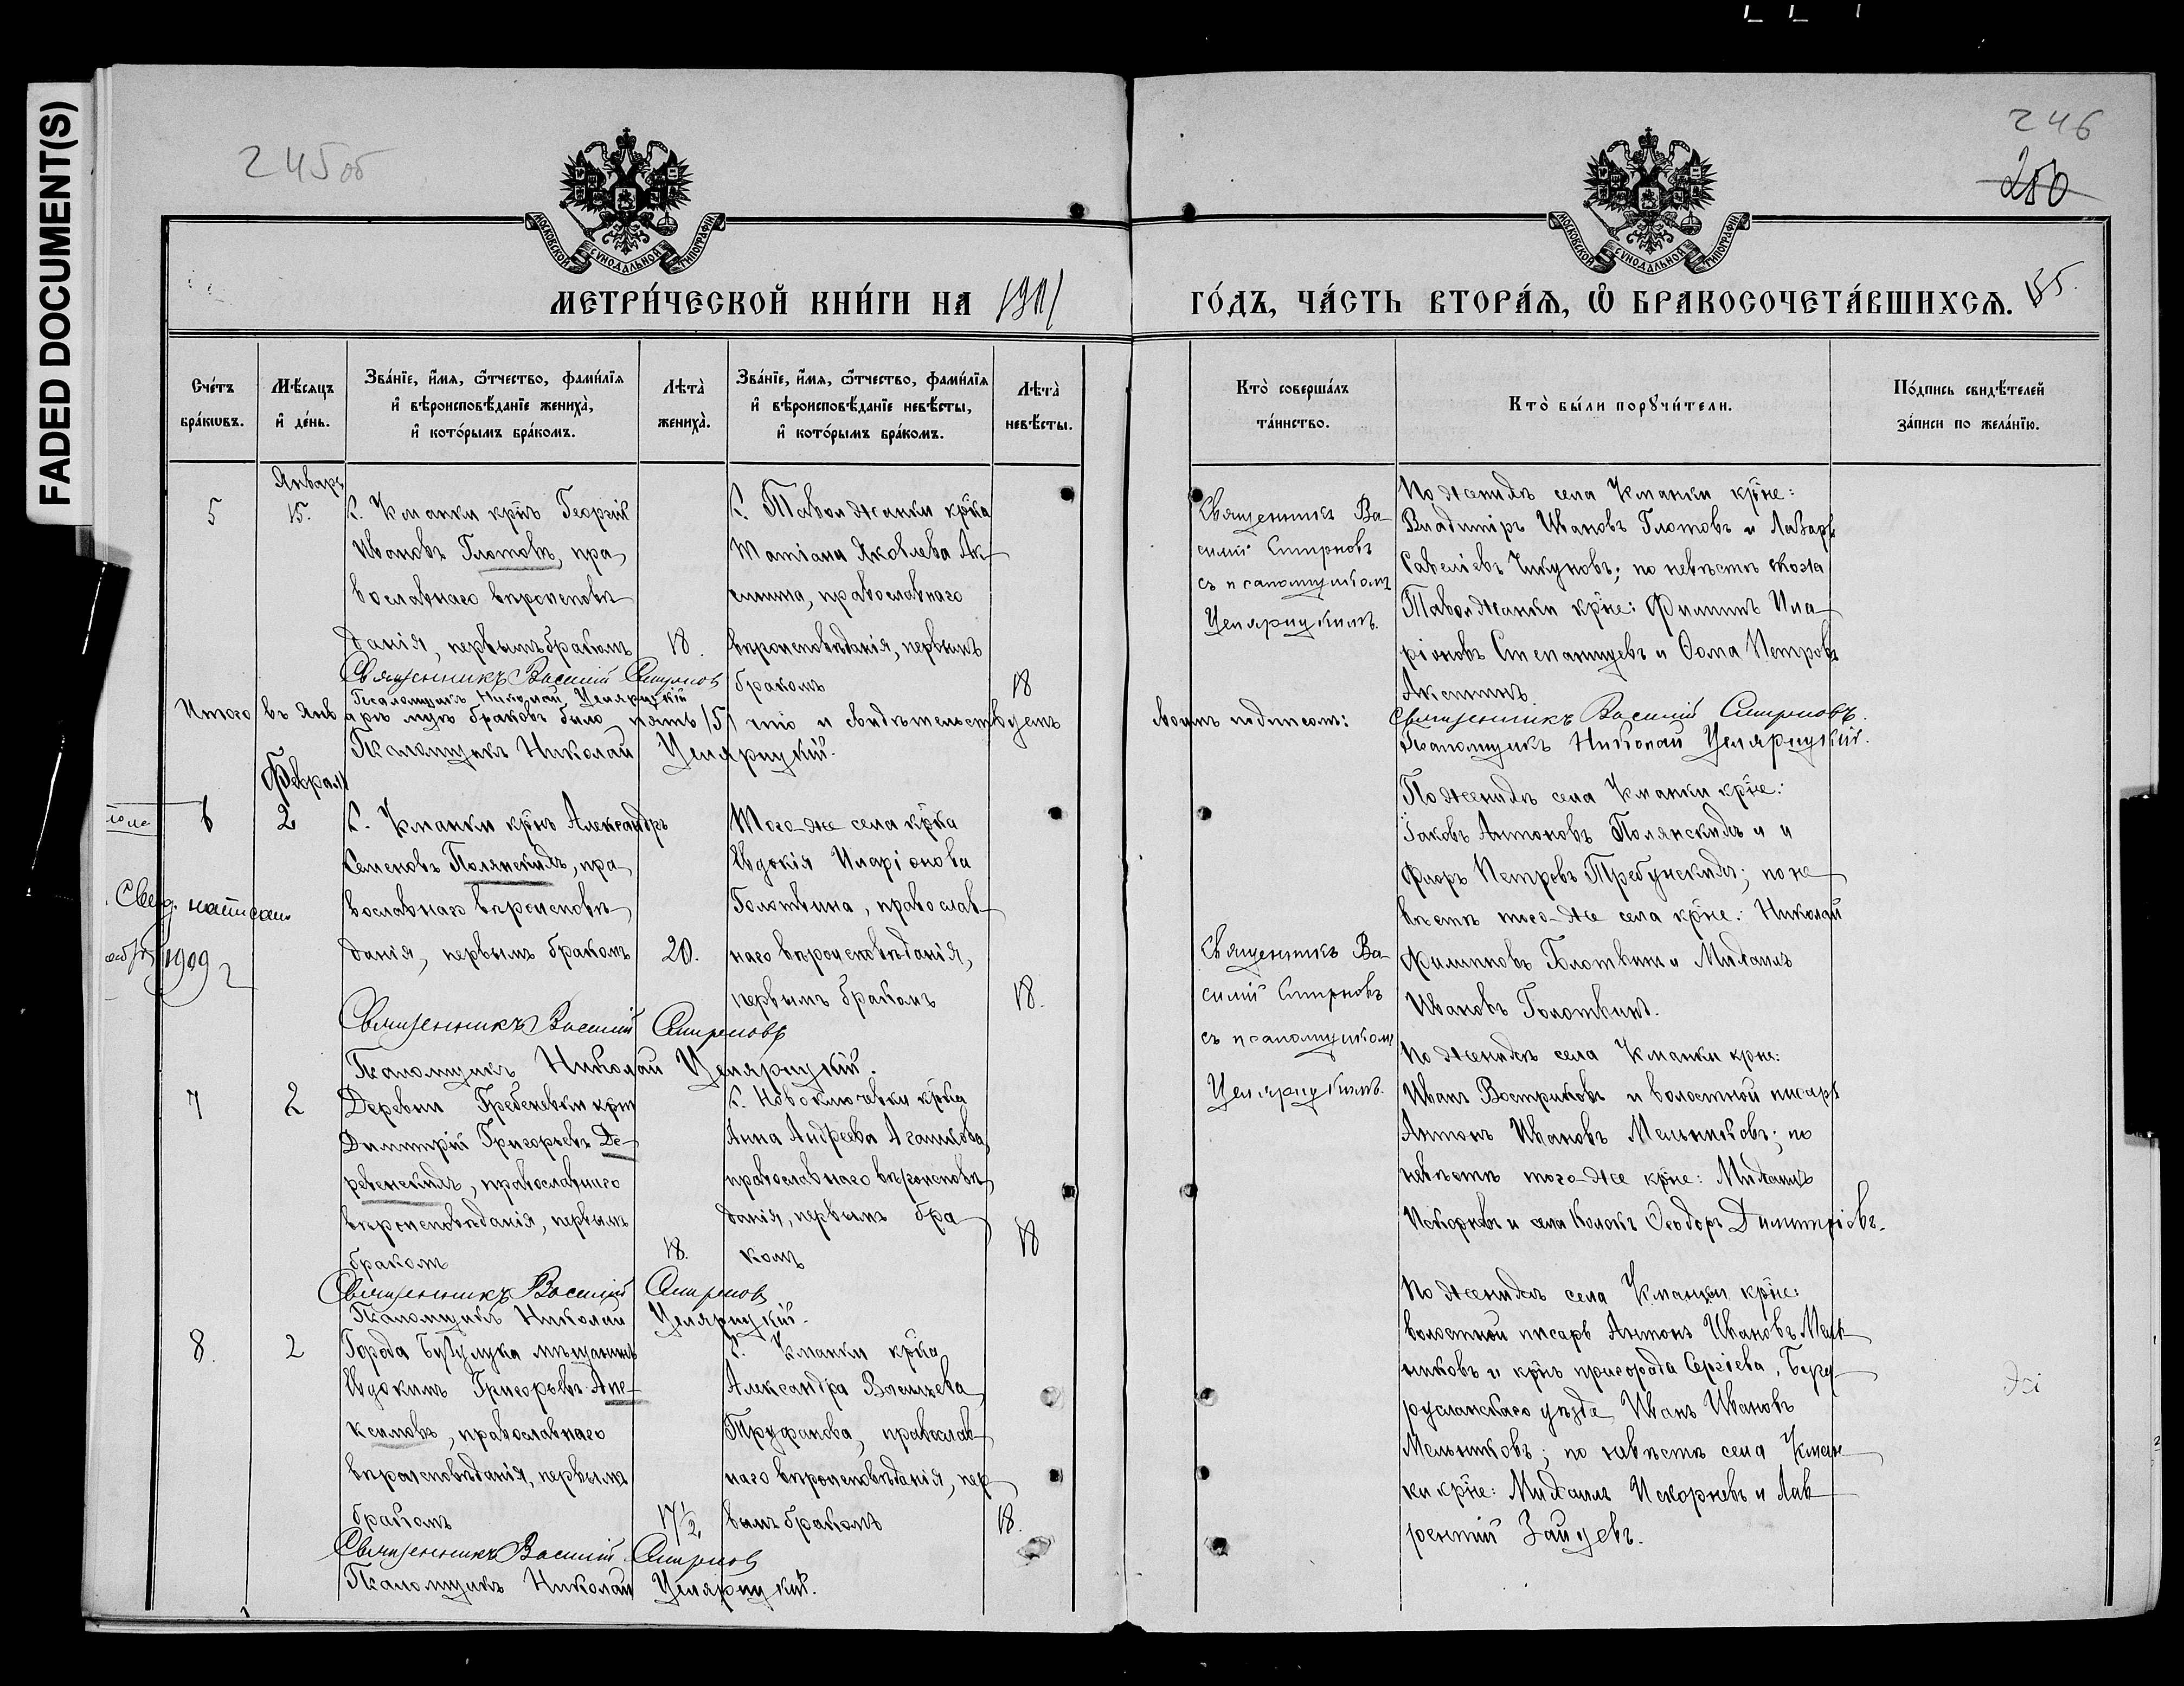 FADED DOCUMENT(S)
245об
246
250
МОСКОВСКОЙ СУНОДАЛЬНОЙ ТИПОГРАФИИ
МОСКОВСКОЙ СУНОДАЛЬНОЙ ТИПОГРАФИИ
МЕТРИ́ЧЕСКОЙ КНИ́ГИ НА 1901
ГО́ДЪ, ЧА́СТЬ ВТОРА́Я, Ѽ БРАКОСОЧЕТА́ВШИХСЯ. 155.
Сче́тъ бра́кѡвъ.
Мѣ́сяцъ и҆ де́нь.
Зва́нїе, и҆́мя, ѻ҆́тчество, фами́лїя
и҆ вѣроисповѣ́данїе жениха̀,
и҆ кото́рымъ бра́комъ.
Лѣта̀ жениха̀.
Зва́нїе, и҆́мя, ѻ҆́тчество, фами́лїя
и҆ вѣроисповѣ́данїе невѣ́сты,
и҆ кото́рымъ бра́комъ.
Лѣта̀ невѣ́сты.
Кто̀ соверша́лъ та́инство.
Кто̀ бы́ли порꙋчи́тели.
По́дпись свидѣ́телей за́писи по жела́нїю.
Январь
5
15.
С. Кманки крнъ Георгій
Ивановъ Глотовъ, пра
вославнаго вѣроисповѣ
данія, первымъ бракомъ
18.
С. Таволжанки крка
Татіана Яковлева Ак
синина, православнаго
вѣроисповѣданія, первымъ
бракомъ
18
Священникъ Ва-
силій Смирновъ
съ псаломщикомъ
Целярицкимъ.
По женихѣ села Кманки крне:
Владиміръ Ивановъ Глотовъ и Лазарь
Савеліевъ Чикуновъ; по невѣстѣ села
Таволжанки крне: Филиппъ Ила
ріоновъ Степанищевъ и Ѳома Петровъ
Аксининъ.
Священникъ Василій Смирнов
Псаломщикъ Николай Целярицкій
Итого въ январѣ мцѣ браковъ было пять /5/ что и свидѣтельствуемъ своимъ подписомъ:
Священникъ Василій Смирновъ.
Псаломщикъ Николай Целярицкій.
Псаломщикъ Николай Целярицкій.
Февраль
6
2
С. Кманки крнъ Александръ
Семеновъ Полянскихъ, пра
вославнаго вѣроисповѣ
данія, первымъ бракомъ
20.
Того-же села крка
Евдокія Иларіонова
Болотвина, православ
наго вѣроисповѣданія,
первымъ бракомъ
18.
Свид. написан
1909 г
Священникъ Ва-
силій Смирновъ
съ псаломщикомъ
Целярицкимъ.
По женихѣ села Кманки крне:
Іаковъ Антоновъ Полянскихъ и и
Флоръ Петровъ Требунскихъ; по не
вѣстѣ того-же села крне: Николай
Филипповъ Болотвин и Михаилъ
Ивановъ Болотвинъ.
Священникъ Василій Смирновъ
Псаломщикъ Николай Целярицкій.
7
2
Деревни Гребеневки крнъ
Димитрій Григорьевъ Де-
ревенскихъ, православнаго
вѣроисповѣданія, первымъ
бракомъ
18.
С. Новоключевки крка
Анна Андреева Агашкова
православнаго вѣроисповѣ
данія, первымъ бра
комъ
18
По женихѣ села Кманки крне:
Иванъ Востриковъ и волостной писарь
Антонъ Ивановъ Мельниковъ; по
невѣстѣ того-же крне: Михаилъ
Искорневъ и села Колокъ Ѳеодоръ Димитріевъ.
Священникъ Василій Смирнов
Псаломщикъ Николай Целярицкій.
8.
2
Города Бузулука мѣщанинъ
Евдокимъ Григорьевъ Але-
ксимовъ, православнаго
вѣроисповѣданія, первымъ
бракомъ
17½
С. Кманки крка
Александра Васильева
Труфанова, православ
наго вѣроисповѣданія, пер
вымъ бракомъ
18.
По женихѣ села Кманки крне:
волостной писарь Антонъ Ивановъ Мель
никовъ и крнъ пригорода Сергіева, Бугу
русланскаго уѣзда Иванъ Ивановъ
Мельниковъ; по невѣстѣ села Кман
ки крне: Михаилъ Искорневъ и Лав
рентій Зайцевъ.
Священникъ Василій Смирнов
Псаломщикъ Николай Целярицкій.